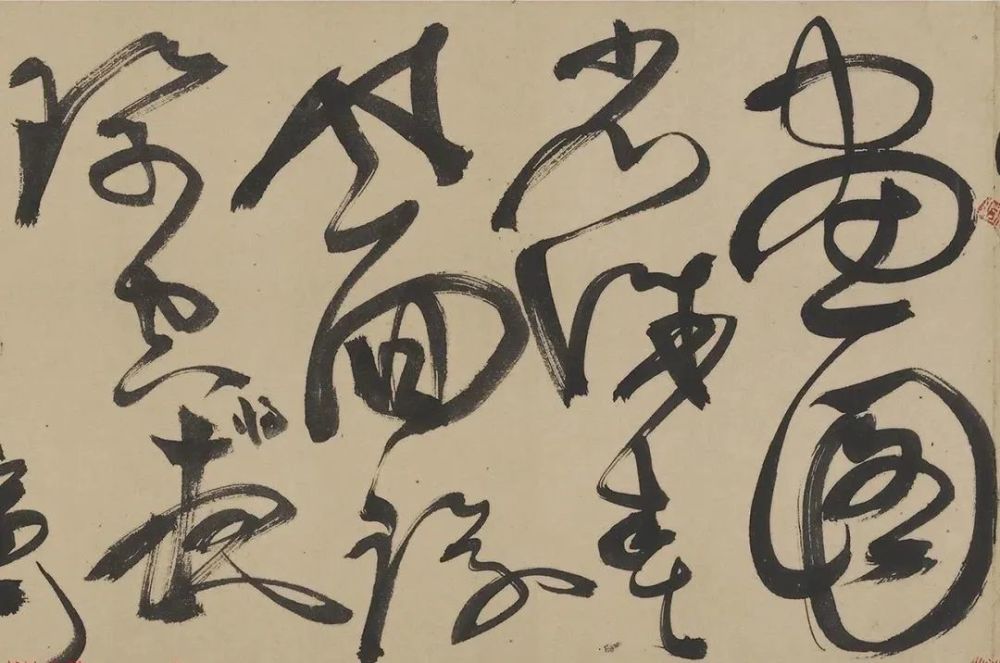 畫圖
省識春
風面環
珮空歸夜